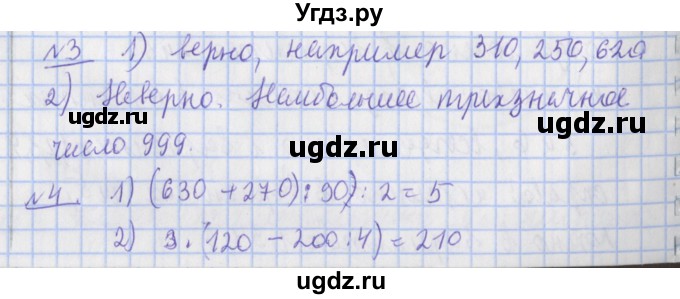 Угдз.ру
№3 1) верно, например 310, 250, 620
2) Неверно. Наибольшее трехзначное
ugdz.ru ugdz.ru ugdz.ru
число 999.
№4. 1) (630 + 270) : 90) : 2 = 5
2) 3 · (120 - 200 : 4) = 210
ugdz.ru ugdz.ru ugdz.ru